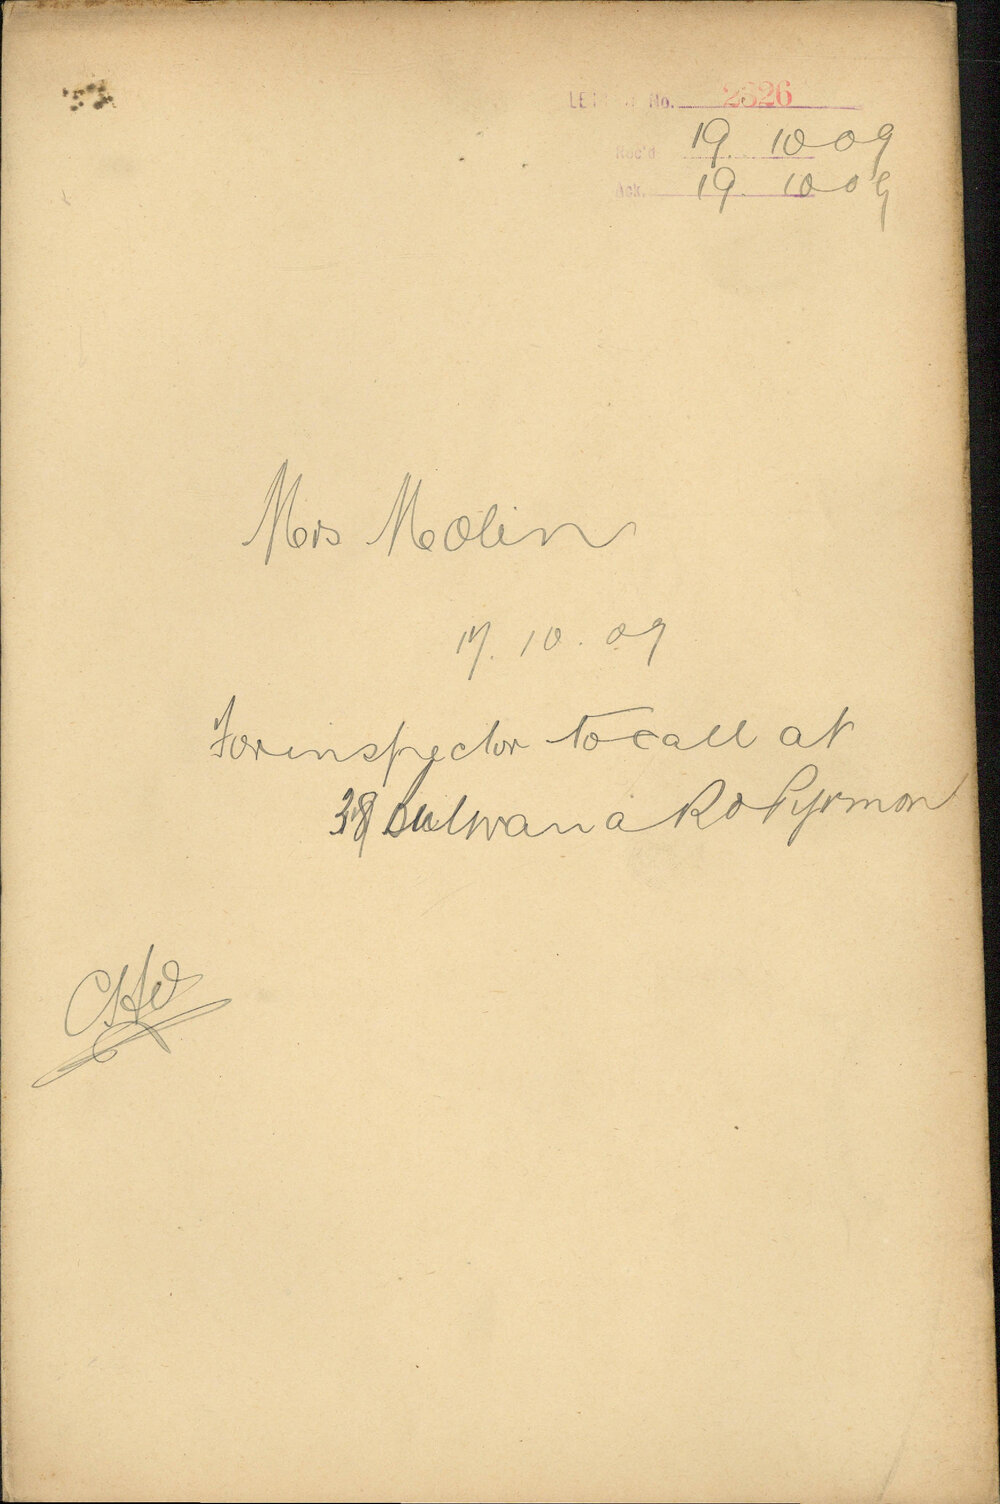 LETTER No. 2526
Rec'd 19. 10 09
Ack. 19. 10 09
Mrs Molin
17. 10. 09
For inspector to call at
38 Bulwana Rd Pyrmon